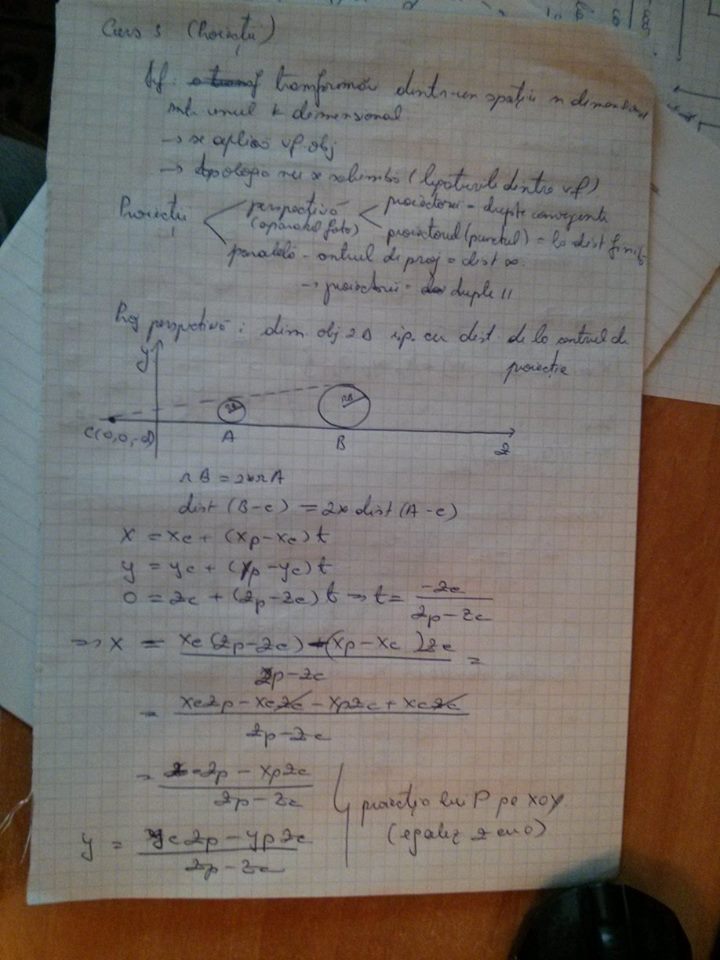 Curs 3 (Proiecții)
def. transformări dintr-un spațiu n dimensional
într. unul k dimensional
→ se aplică vf. obj
→ topologia nu se schimbă (legăturile dintre vf)
Proiecții
perspectivă
(aparatul foto)
proiectorii = drepte convergente
proiectorul (punctul) = la dist finită
paralelă - centrul de proj = dist ∞
→ proiectorii = drepte ||
Proj perspectivă : dim obj 2D ip. cu dist de la centrul de
proiecție
y
rA
rB
C(0,0,-d)
A
B
z
rB = 2×rA
dist (B-c) = 2× dist (A-c)
x = xc + (xp-xc) t
y = yc + (yp-yc) t
0 = zc + (zp-zc) t ⇒ t = -zc / zp-zc
⇒ x = xc(zp-zc) - (xp-xc) zc / zp-zc =
= xczp - xczc - xpzc + xczc / zp-zc
= zp - xpzc / zp-zc
proiecția lui P pe xoy
(egalez z cu 0)
y = yczp - ypzc / zp-zc